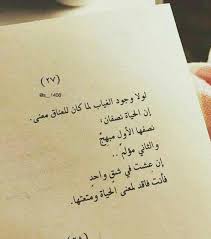 (٢٧)
لولا وجود الغياب لما كان للعناق معنى.
إن الحياة نصفان:
نصفها الأول مبهجٌ
والثاني مؤلمٌ ..
إن عشت في شقٍ واحدٍ
فأنت فاقد لمعنى الحياة ومتعتها.